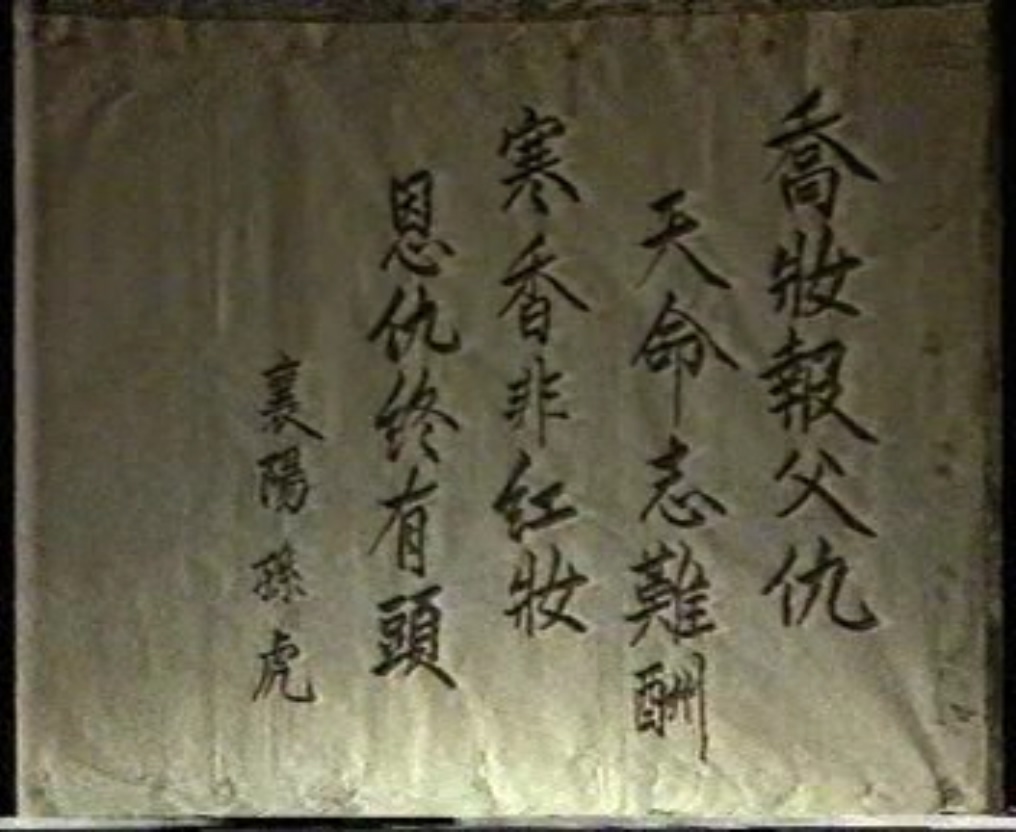 喬妝報父仇
天命志難酬
寒香非紅妝
恩仇終有頭
襄陽孫虎